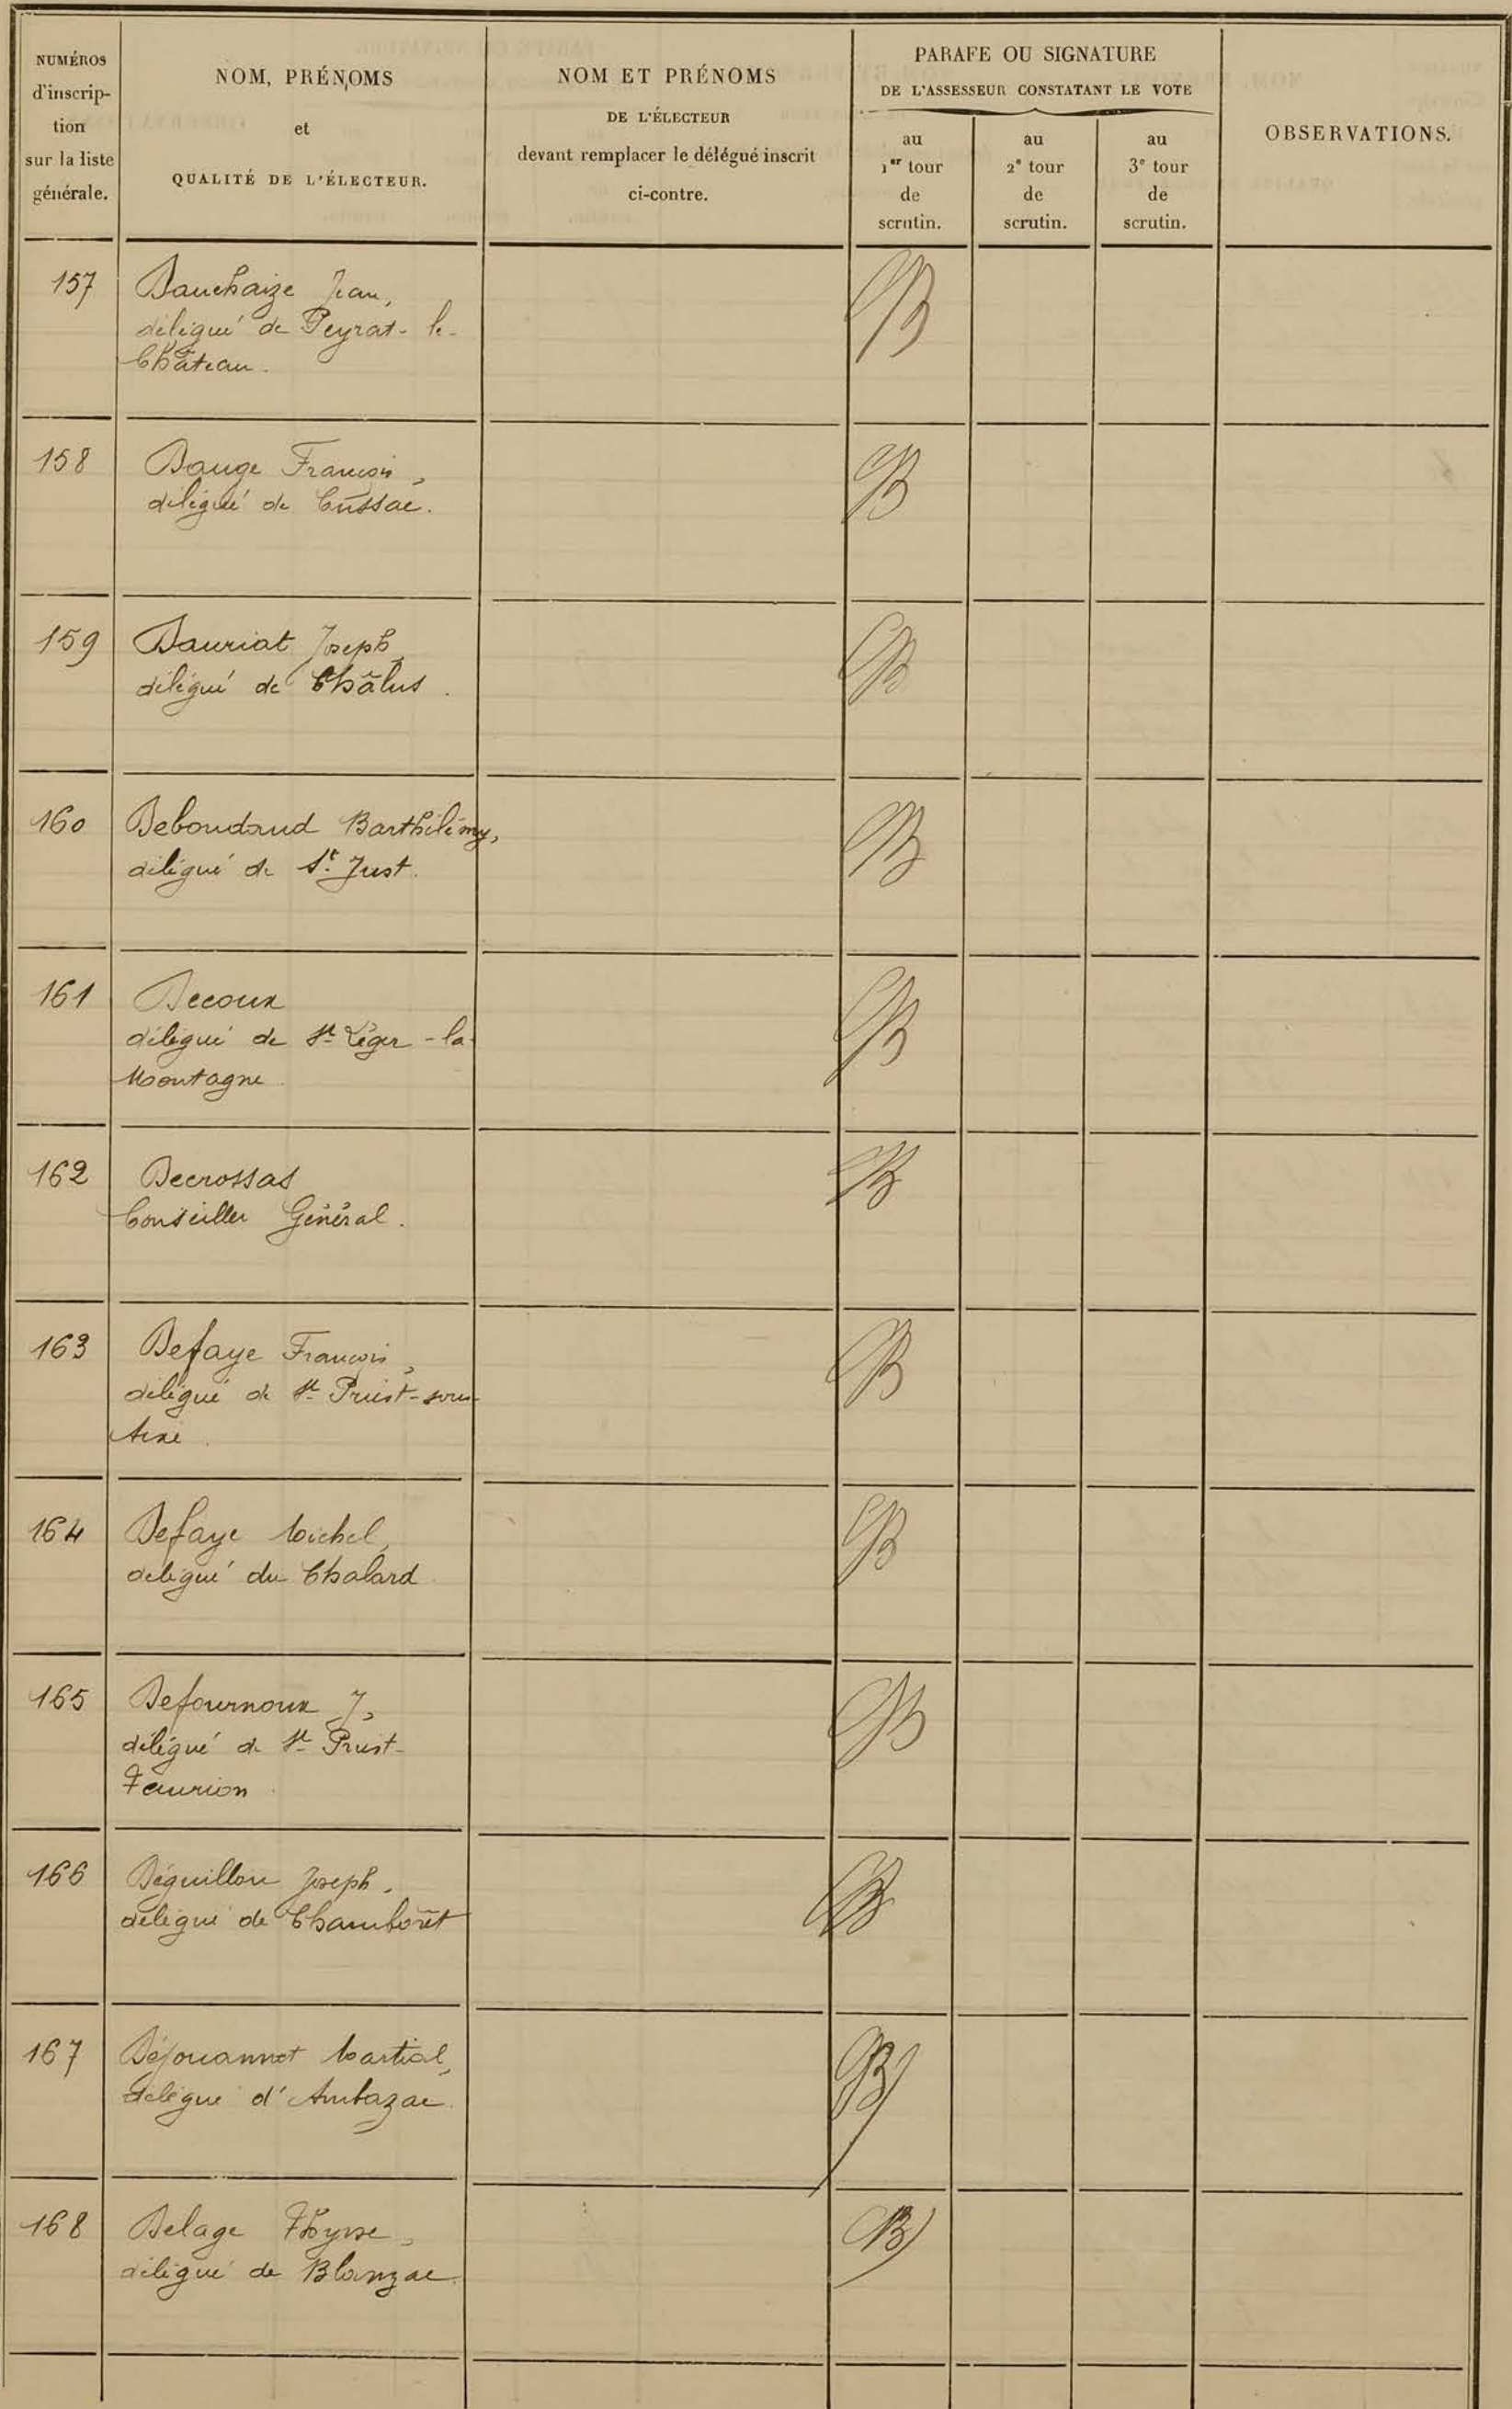 NUMÉROS
d'inscrip-
tion
sur la liste
générale.
NOM, PRÉNOMS
et
QUALITÉ DE L'ÉLECTEUR.
NOM ET PRÉNOMS
DE L'ÉLECTEUR
devant remplacer le délégué inscrit
ci-contre.
PARAFE OU SIGNATURE
DE L'ASSESSEUR CONSTATANT LE VOTE
au
1er tour
de
scrutin.
au
2e tour
de
scrutin.
au
3e tour
de
scrutin.
OBSERVATIONS.
157 Dauchaize Jean,
délégué de Peyrat-le-
Château.
158 Dauge François,
délégué de Cussac.
159 Dauriat Joseph,
délégué de Châlus.
160 Deboudaud Barthélémy,
délégué de St. Just.
161 Decoux
délégué de St Léger-la-
Montagne
162 Decrossas
Conseiller Général.
163 Defaye François,
délégué de St Priest-sous-
Aixe.
164 Defaye Michel,
délégué du Chalard
165 Defournoux J,
délégué de St Priest-
Taurion
166 Déguillou Joseph,
délégué de Chamboret
167 Déjouannet Martial,
délégué d'Ambazac.
168 Delage Thyrse,
délégué de Blanzac.